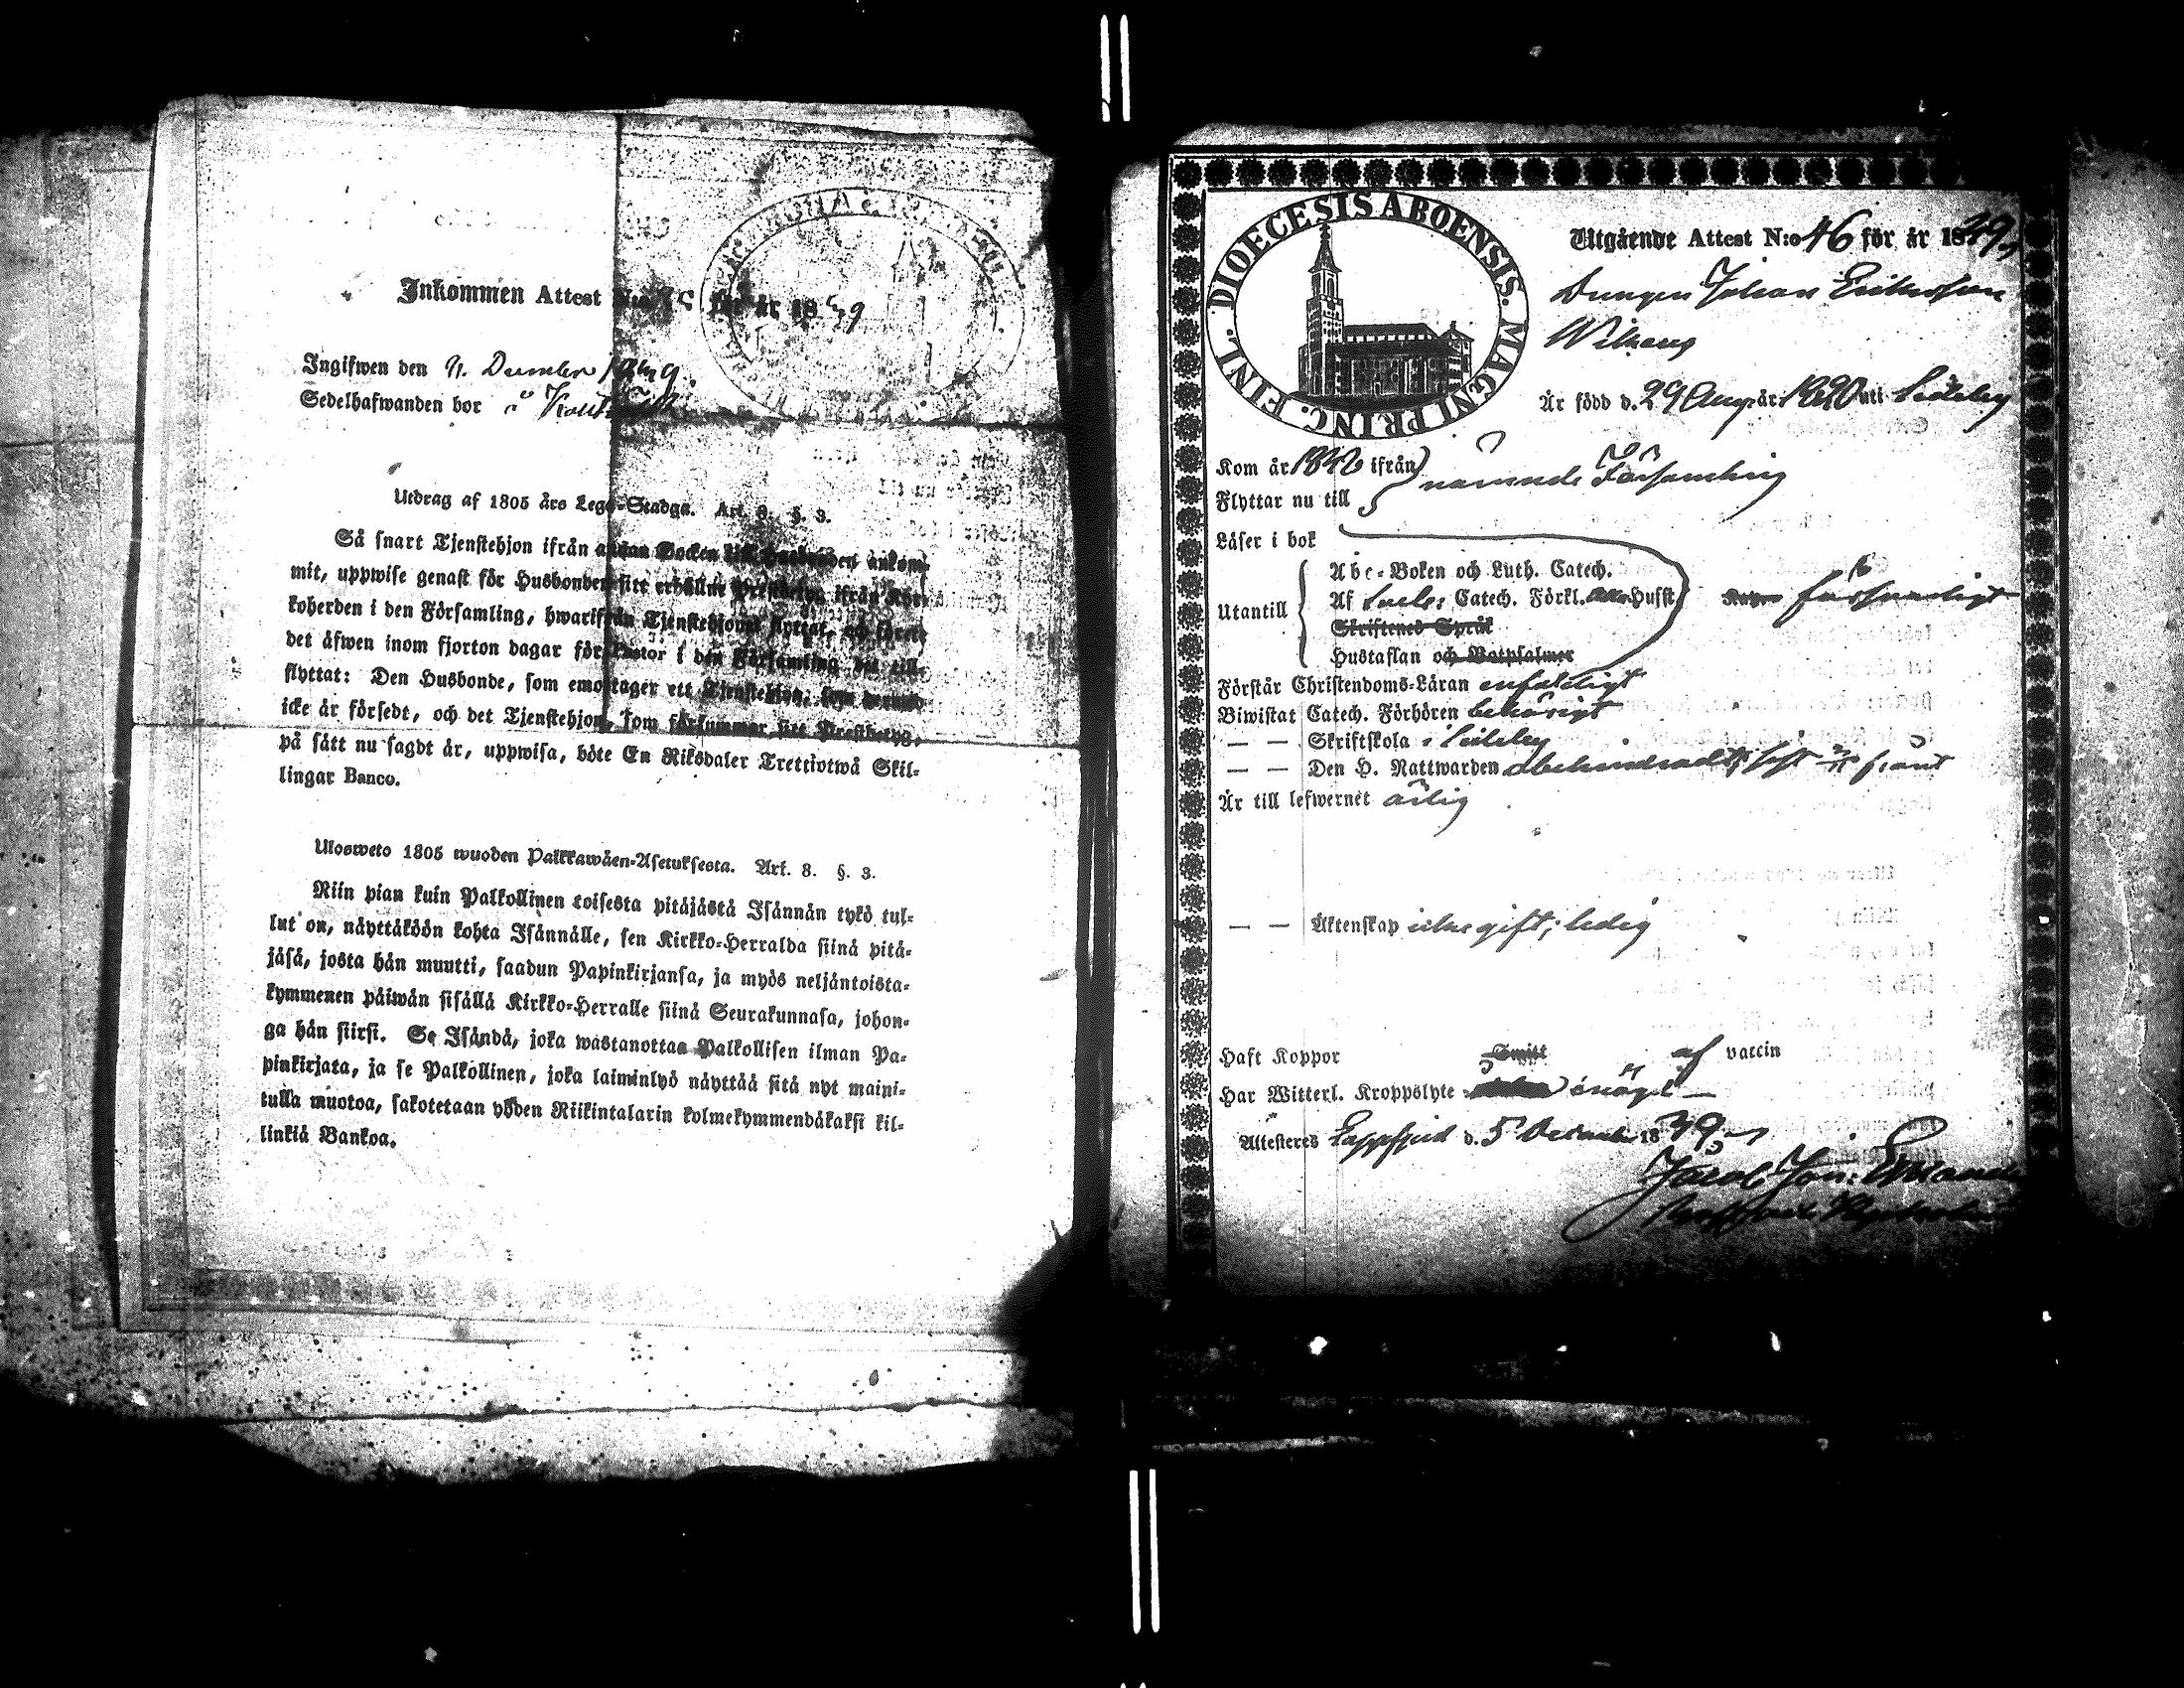 Inkommen Attest för år 1849
Ingifwen den 11. December 1849.
Sedelhafwanden bor i
Utdrag af 1805 års Lego-Stadga. Art. 8. §. 3.
Så snart Tjenstehjon ifrån annan Socken till Husbonden ankom-
mit, uppwise genast för Husbonden sitt erhållne Prestbetyg ifrån Kyr-
koherden i den Församling, hwarifrån Tjenstehjonet flyttat, och förete
det åfwen inom fjorton dagar för Pastor i den Församling det till-
flyttat: Den Husbonde, som emottager ett Tjenstehjon, som
icke år försedt, och det Tjenstehjon, som försummar sitt Prestbetyg,
på sått nu sagdt år, uppwisa, böte En Riksdaler Trettiotwå Skil-
lingar Banco.
Ulosweto 1805 wuoden Palkkawåen-Asetuksesta. Art. 8. §. 3.
Niin pian kuin Palkollinen toisesta pitåjåstå Isånnån tykö tul-
lut on, nåyttåköön kohta Isånnålle, sen Kirkko-Herralda siinå pitå-
jåså, josta hån muutti, saadun Papinkirjansa, ja myös neljåntoista-
kymmenen påiwån sisållå Kirkko-Herralle siinå Seurakunnasa, johon-
ga hån siirsi. Se Isåndå, joka wastanottaa Palkollisen ilman Pa-
pinkirjata, ja se Palkollinen, joka laiminlyö nåyttåå sitå nyt maini-
tulla muotoa, sakotetaan yöden Riikintalarin kolmekymmendåkaksi kil-
linkiå Bankoa.
FINL. DIOECESIS ABOENSIS. MAGNI PRINC.
Utgående Attest N:o 46 för år 1849
Drengen Johan Eriksson
År född d. 29 Aug. år 1820 uti Sideby
Kom år 1848 ifrån
nämnde Församling
Flyttar nu till
Låser i bok
Abc-Boken och Luth. Catech.
Utantill
Af Catech. Förkl. Husft.
försvarligt
Skriftenes Språk
Hustaflan och Botpsalmer
Förstår Christendoms-Låran enfaldigt
Biwistat Catech. Förhören behörigt
— — Skriftskola i Sideby
— — Den H. Nattwarden obehindradt, sist
År till lefwernet ärlig
— — Åktenskap icke gift; ledig
Haft Koppor af vaccin
Har Witterl. Kroppslyte
Attesteres Lappfjerd d. 5 December 1849
Jacob Joh: